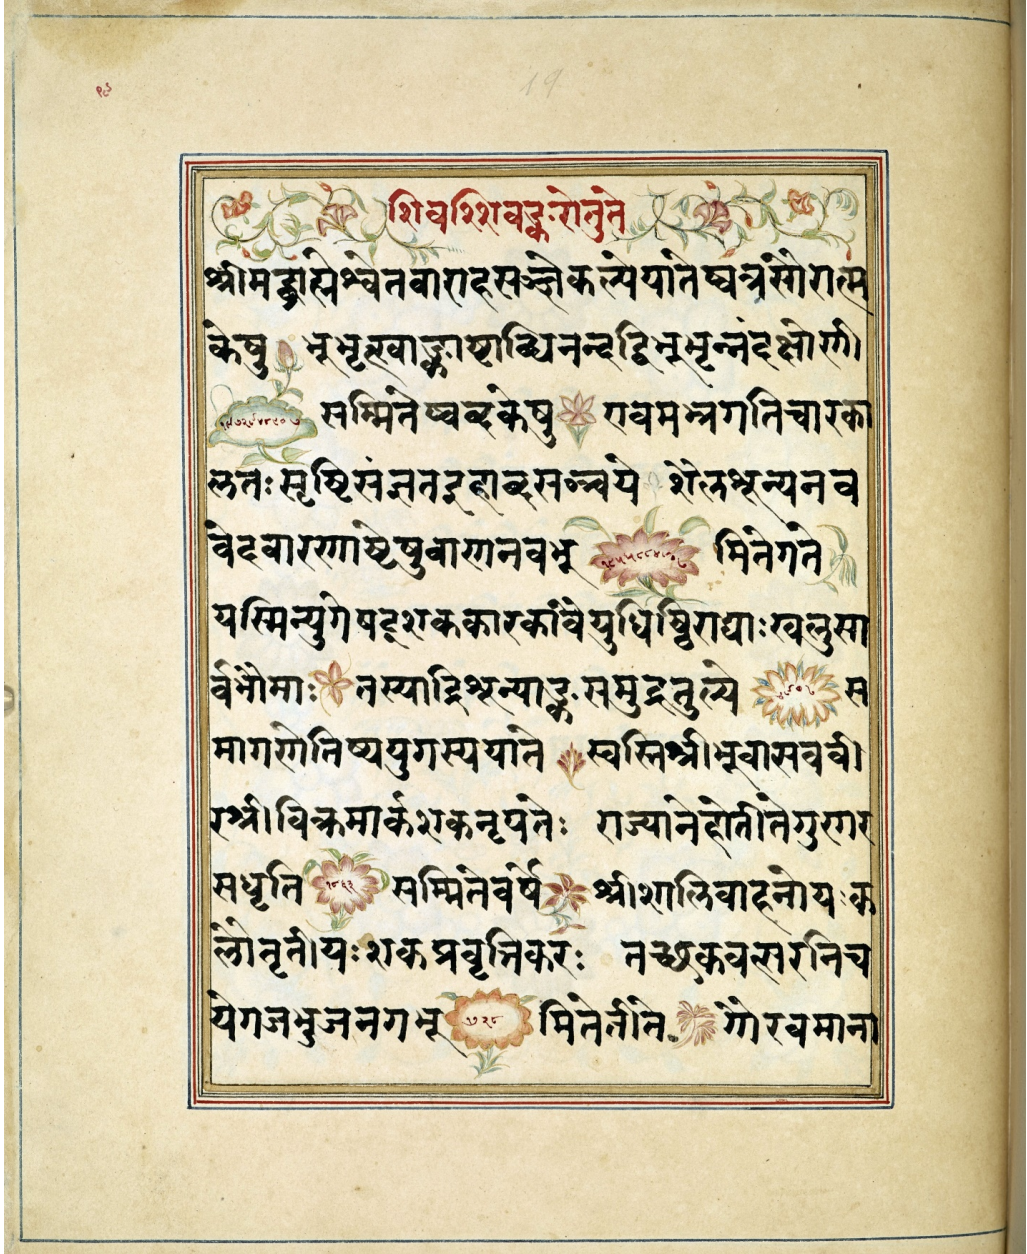 १८
19
शिवश्शिवङ्करोतुते
श्रीमद्ब्राह्मेश्वेतवाराहसञ्ज्ञेकल्पेयातेष्वत्रसौरात्म
केषु भूभृत्खाङ्काष्टाब्ध्यिनन्दद्विभूभृन्नंदक्षोणी
सम्मितेष्वब्दकेषु गवमत्रगतिचारका
लतः सृष्टिसंज्ञतद्रुहाब्दसञ्चये शैलभून्यनव
वेदवारणाष्टेषुवाणनवभू मितेगते
यस्मिन्युगेषट्शककारकांवैयुधिष्ठिराद्याः खलुसा
र्वभौमाः तस्याद्रिभून्याङ्कसमुद्रतुल्ये ४९०७ स
मागणेतिष्ययुगस्ययाते स्वस्तिश्रीभूवासववी
रश्रीविक्रमार्कशकनृपतेः राज्यानेहोतीतेगुणर
सधृति १८६३ सम्मितेवर्षे श्रीशालिवाहनीयः क
लौतृतीयः शकप्रवृत्तिकरः तच्छकवत्सरनिच
येगजभुजनगभू १७२८ मितेतीते गौरवमाना